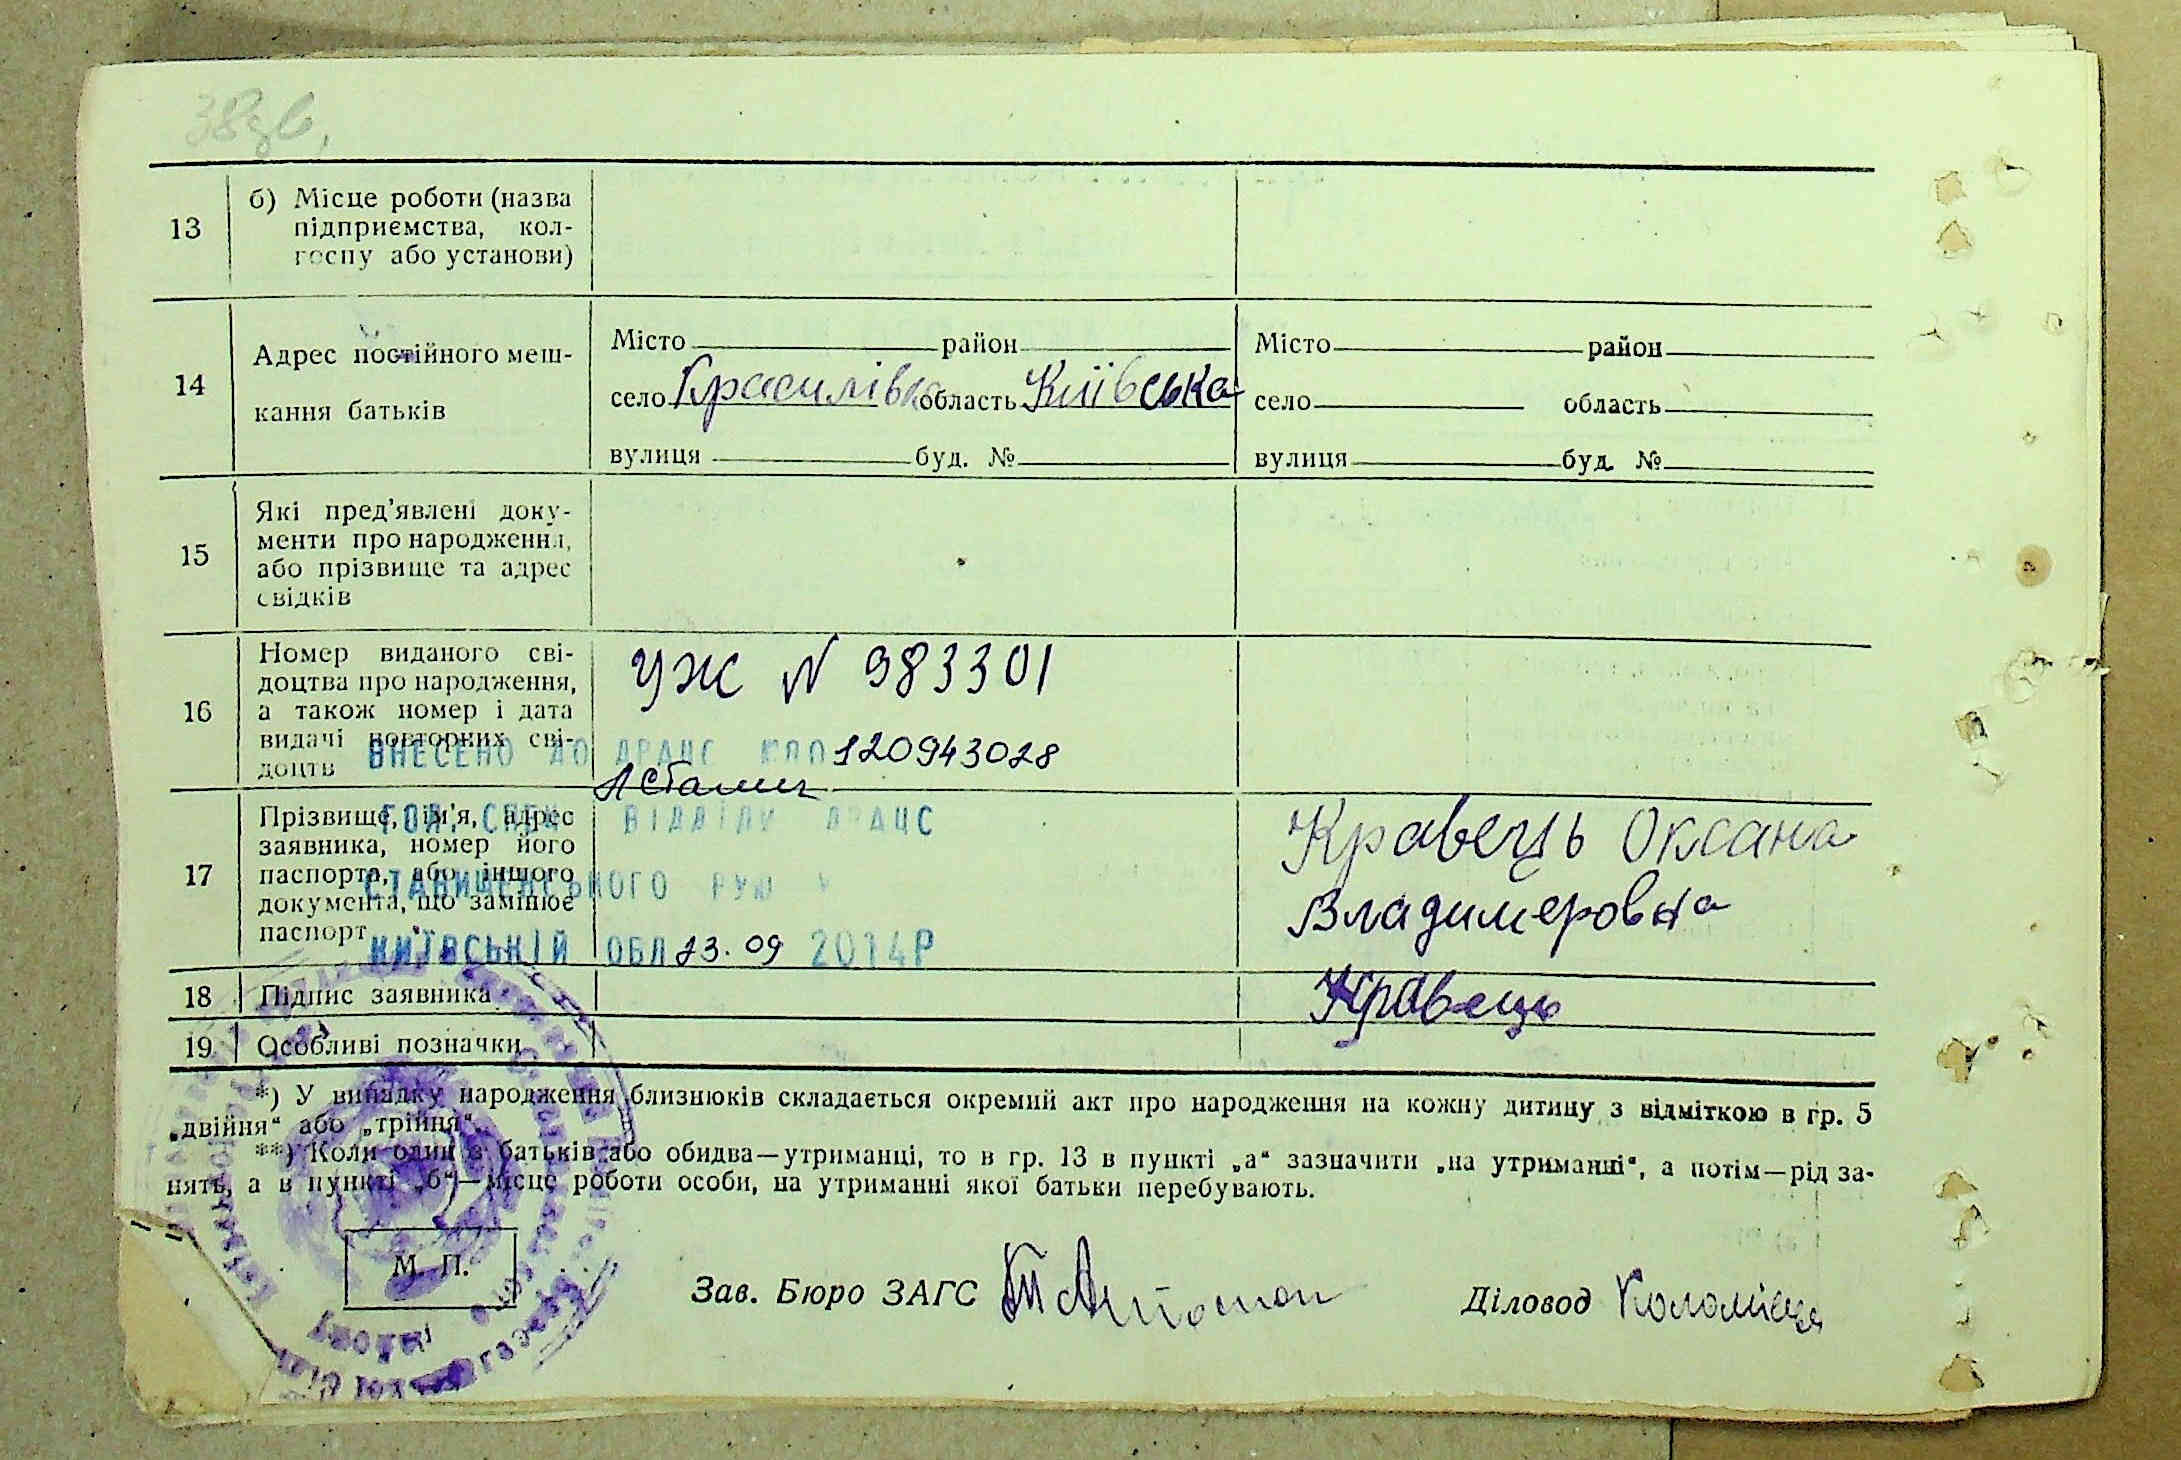 38зв.
13
б) Місце роботи (назва
підприємства, кол-
госпу або установи)
14
Адрес постійного меш-
кання батьків
Місто район
село Красилівка область Київська
вулиця буд. №
Місто район
село область
вулиця буд. №
15
Які пред'явлені доку-
менти про народження,
або прізвище та адрес
свідків
16
Номер виданого сві-
доцтва про народження,
а також номер і дата
видачі повторних сві-
доцтв
УЖ N 983301
ВНЕСЕНО ДО ДРАЦС 120943028
17
Прізвище, ім'я, адрес
заявника, номер його
паспорта, або іншого
документа, що замінює
паспорт
ГОЛ. СПЕЦ ВІДДІЛУ ДРАЦС
СТАВИЩЕНСЬКОГО РУЮ У
КИЇВСЬКІЙ ОБЛ 23.09 2014Р
Кравець Оксана
Владимеровна
18
Підпис заявника
Кравець
19
Особливі позначки
*) У випадку народження близнюків складається окремий акт про народження на кожну дитину з відміткою в гр. 5
„двійня“ або „трійня“.
**) Коли один з батьків або обидва—утриманці, то в гр. 13 в пункті „а“ зазначити „на утриманні“, а потім—рід за-
нять, а в пункті „б“—місце роботи особи, на утриманні якої батьки перебувають.
М. П.
Зав. Бюро ЗАГС
Діловод Коломієць